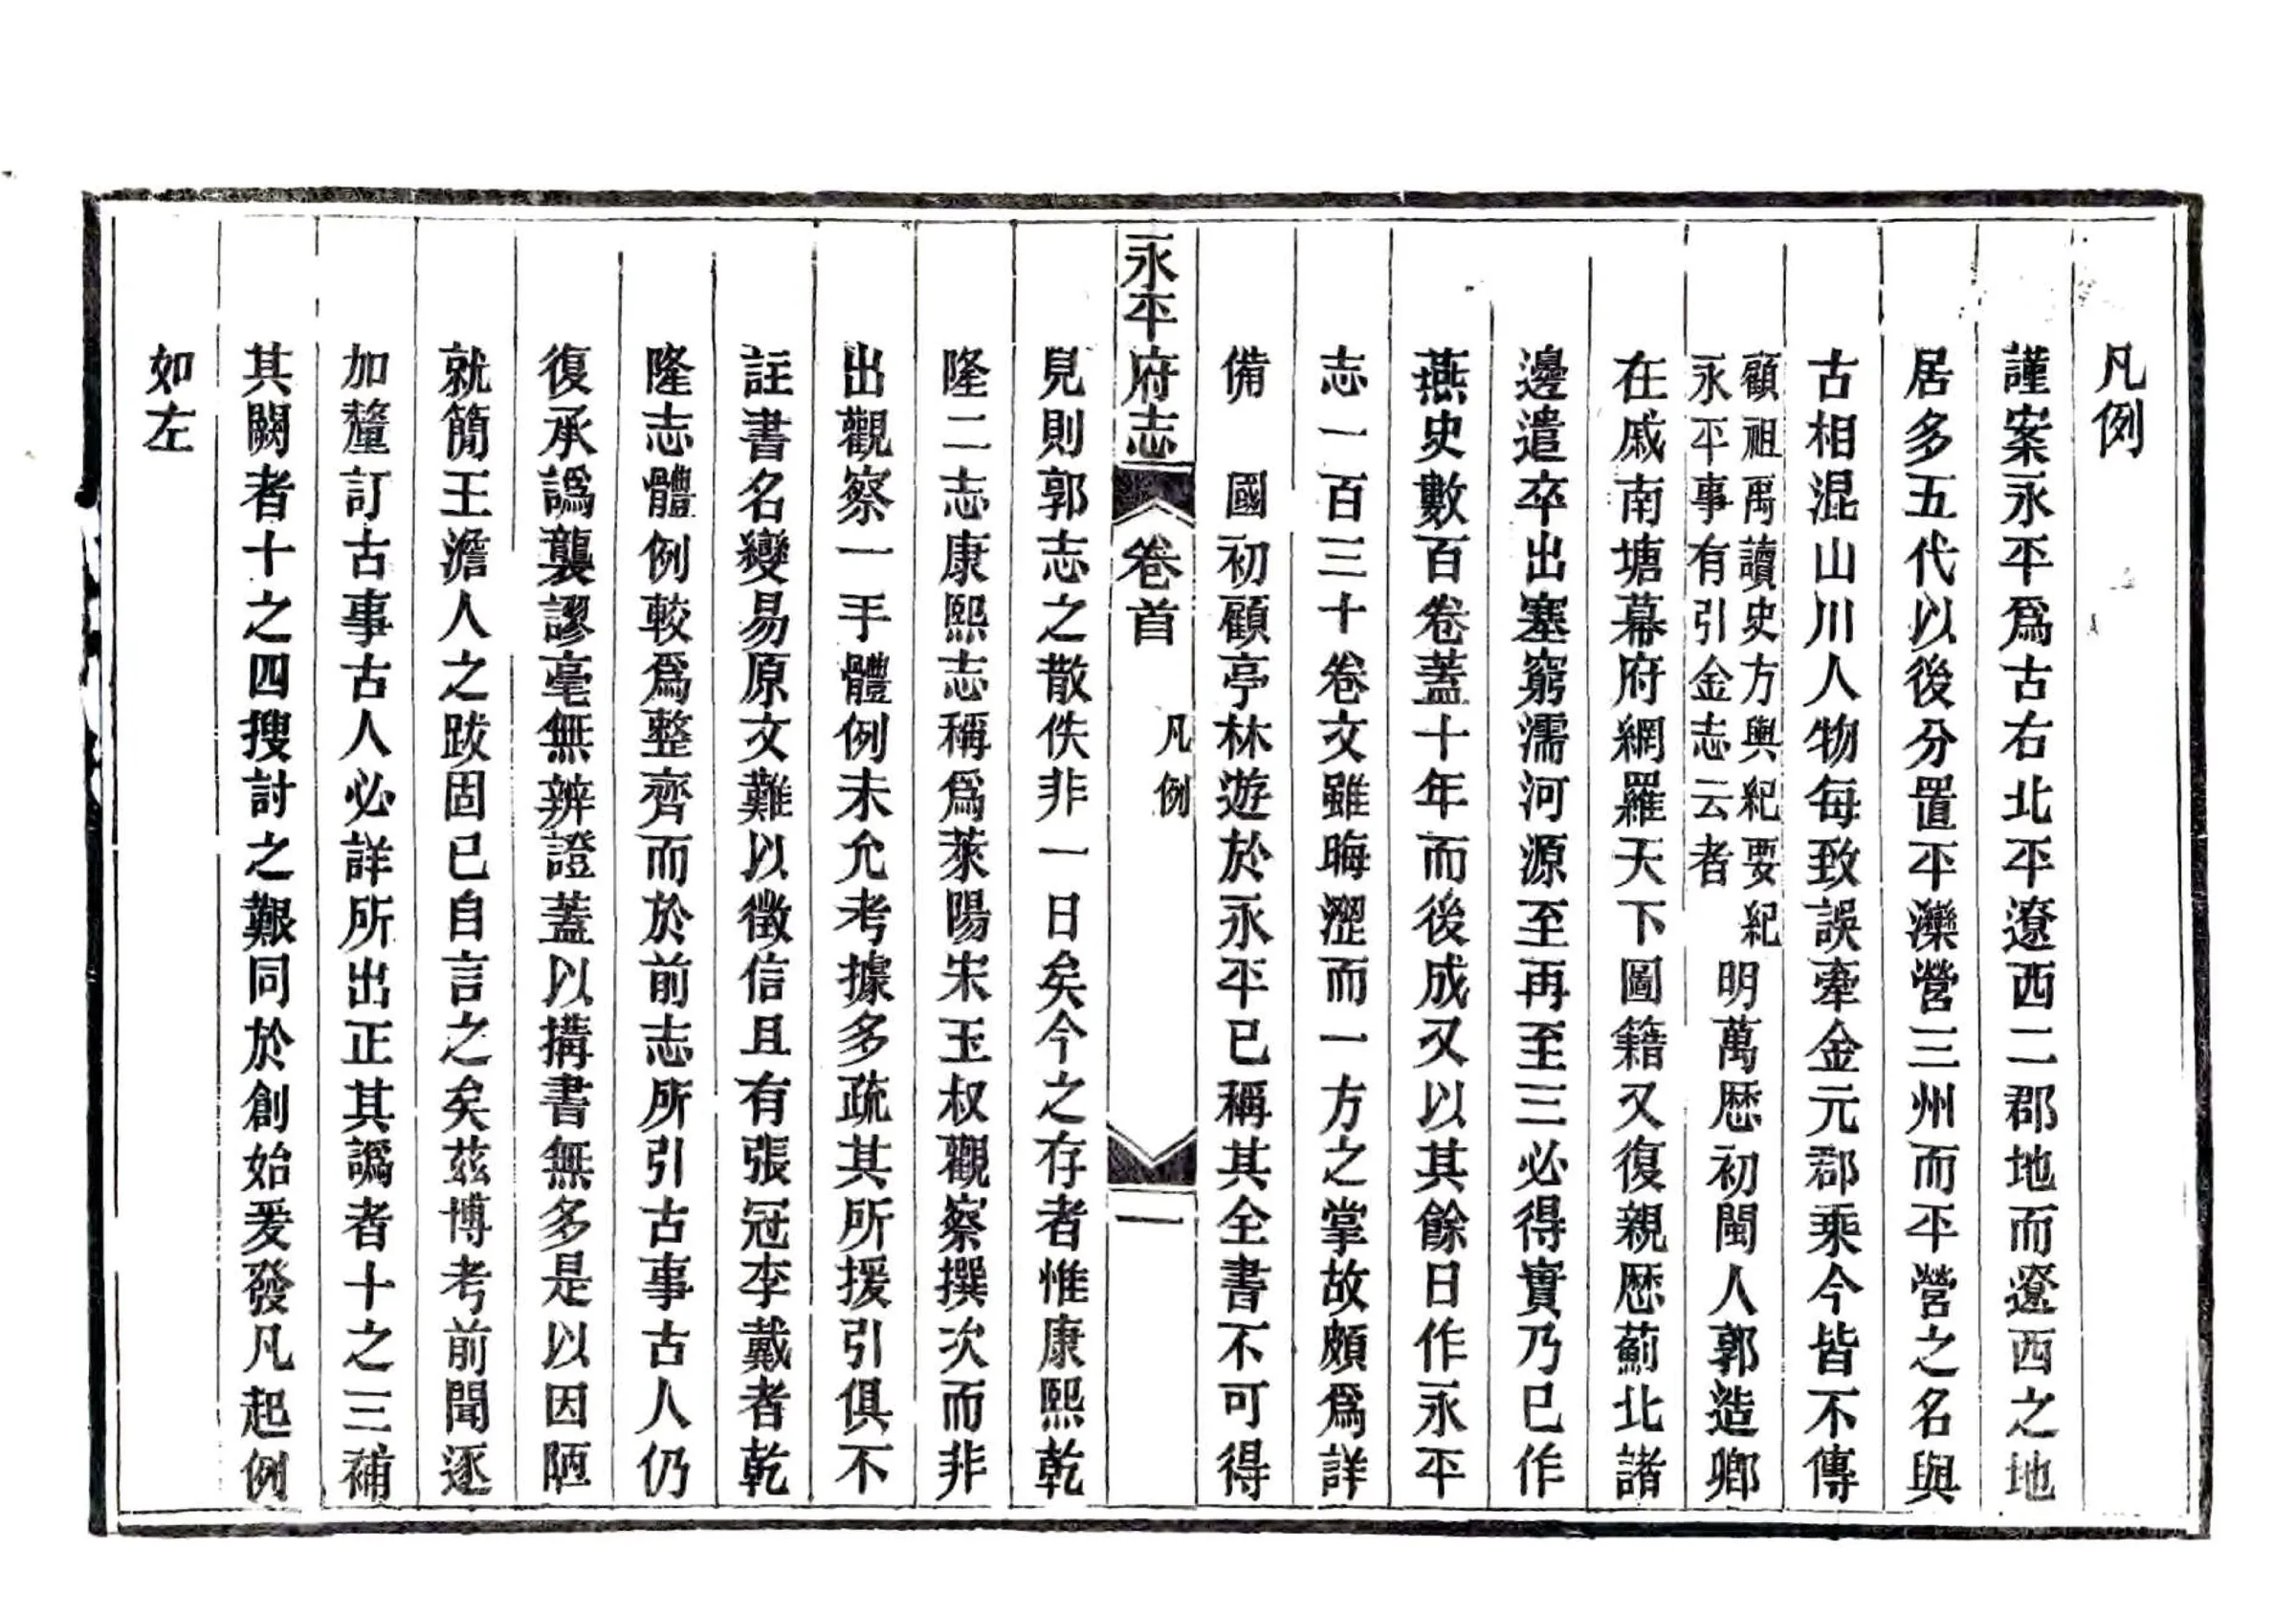 凡例
謹案永平爲古右北平遼西二郡地而遼西之地
居多五代以後分置平灤營三州而平營之名與
古相混山川人物每致誤牽金元郡乘今皆不傳
顧祖禹讀史方輿紀要紀
永平事有引金志云者
明萬歷初閩人郭造卿
在戚南塘幕府網羅天下圖籍又復親歷薊北諸
邊遣卒出塞窮濡河源至再至三必得實乃已作
燕史數百卷蓋十年而後成又以其餘日作永平
志一百三十卷文雖晦澀而一方之掌故頗爲詳
備 國初顧亭林遊於永平已稱其全書不可得
永平府志 卷首 凡例 一
見則郭志之散佚非一日矣今之存者惟康熙乾
隆二志康熙志稱爲萊陽宋玉叔觀察撰次而非
出觀察一手體例未允考據多疏其所援引俱不
註書名變易原文難以徵信且有張冠李戴者乾
隆志體例較爲整齊而於前志所引古事古人仍
復承譌襲謬毫無辨證蓋以搆書無多是以因陋
就簡王澹人之跋固已自言之矣茲博考前聞逐
加釐訂古事古人必詳所出正其譌者十之三補
其闕者十之四搜討之艱同於創始爰發凡起例
如左